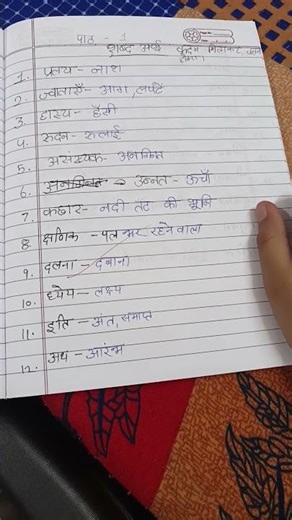 पाठ - 1
शब्द अर्थ
1. प्रलय - नाश
2. ज्वालाएँ - आग, लपटें
3. हास्य - हँसी
4. रूदन - रूलाई
5. असंख्यक - अनगिनत
6. उन्नत - ऊँचा
7. कछार - नदी तट की भूमि
8. क्षणिक - पल भर रहने वाला
9. दलना - दबाना
10. ध्येय - लक्ष्य
11. इति - अंत, समाप्त
12. अथ - आरंभ